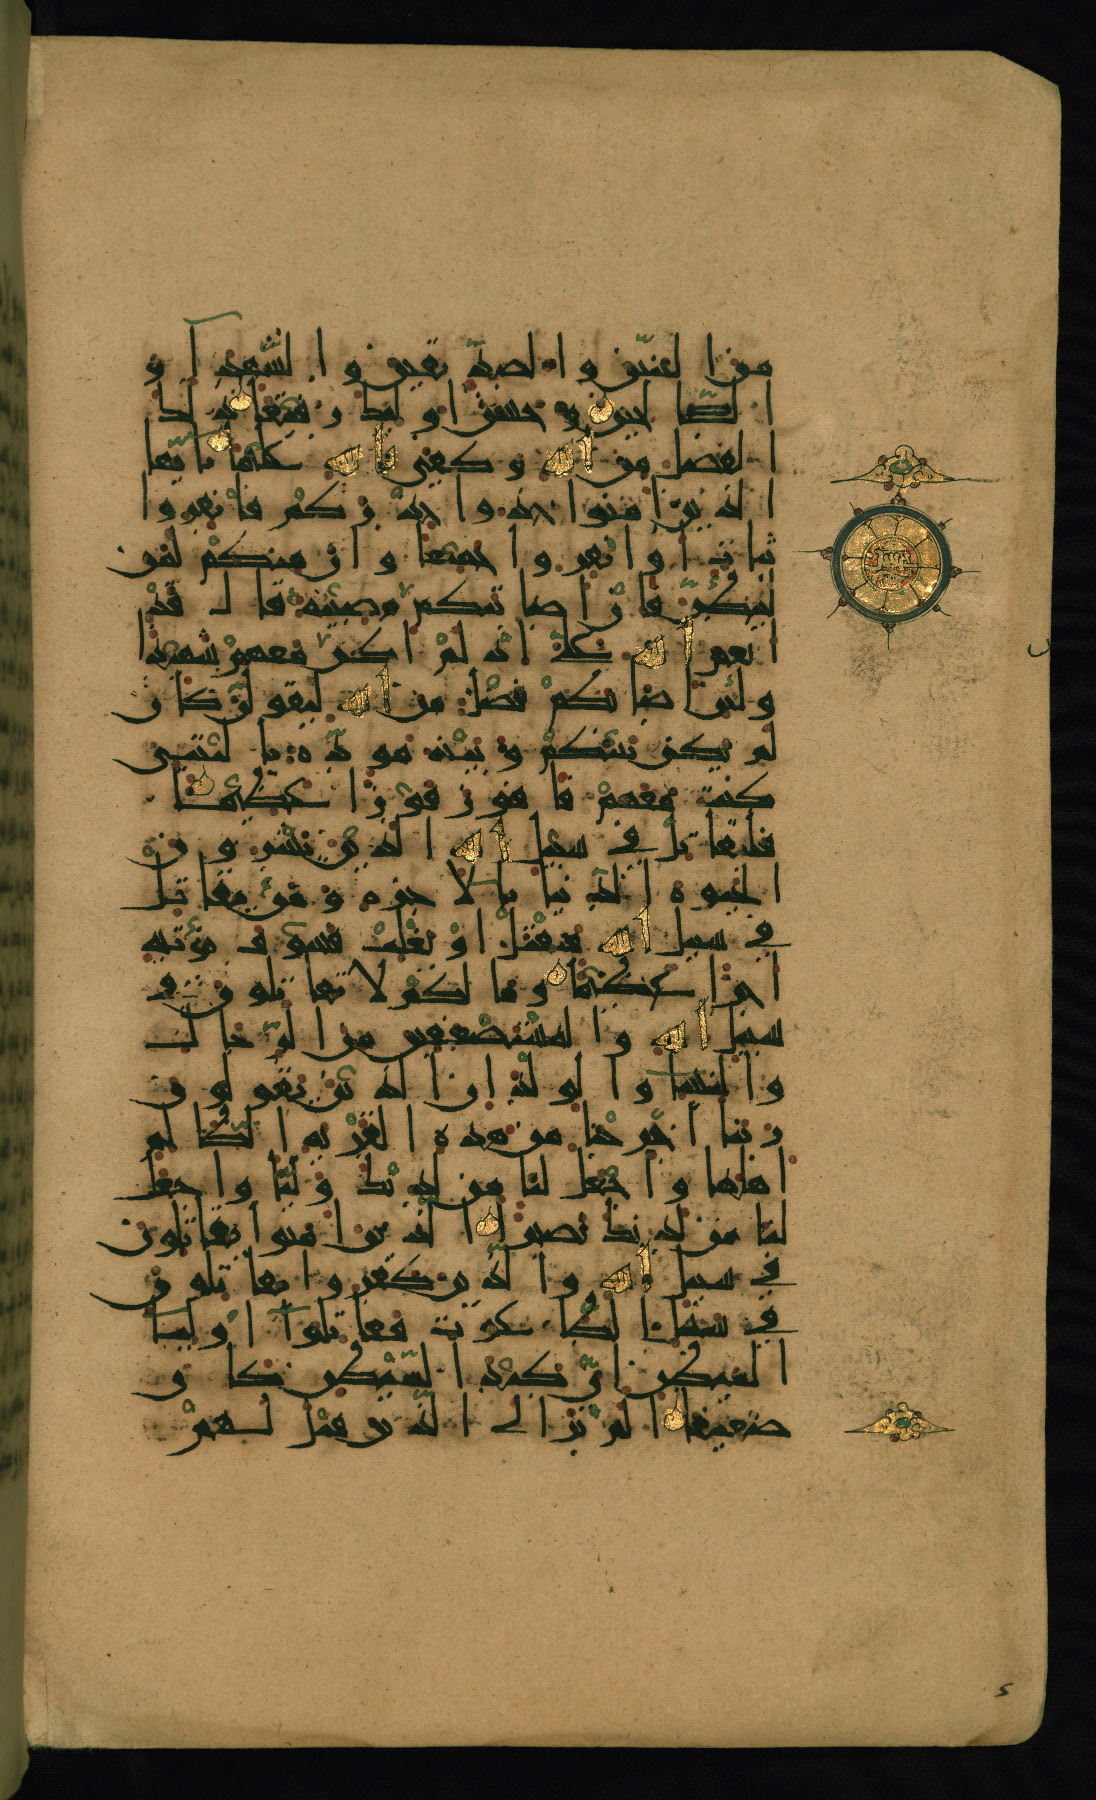 من النبيين والصديقين والشهدا و
الصالحين وحسن اولىك رفيقا ذلك
الفضل من الله وكفى بالله عليما يايها
الذين امنوا خذوا حذركم فانفروا
ثبات او انفروا جميعا وان منكم لمن
ليبطئن فان اصابتكم مصيبة قال قد
انعم الله على اذ لم اكن معهم شهيدا
ولئن اصابكم فضل من الله ليقولن كان
لم يكن بينكم وبينه مودة يا ليتنى
كنت معهم فافوز فوزا عظيما
فليقاتل فى سبيل الله الذين يشرون
الحيوة الدنيا بالاخرة ومن يقاتل
فى سبيل الله فيقتل او يغلب فسوف نؤتيه
اجرا عظيما وما لكم لا تقاتلون فى
سبيل الله والمستضعفين من الرجال
والنسا والولدان الذين يقولون
ربنا اخرجنا من هذه القرية الظالم
اهلها واجعل لنا من لدنك وليا واجعل
لنا من لدنك نصيرا الذين امنوا يقاتلون
فى سبيل الله والذين كفروا يقاتلون
فى سبيل الطاغوت فقاتلوا اوليا
الشيطن ان كيد الشيطن كان
ضعيفا الم تر الى الذين قيل لهم